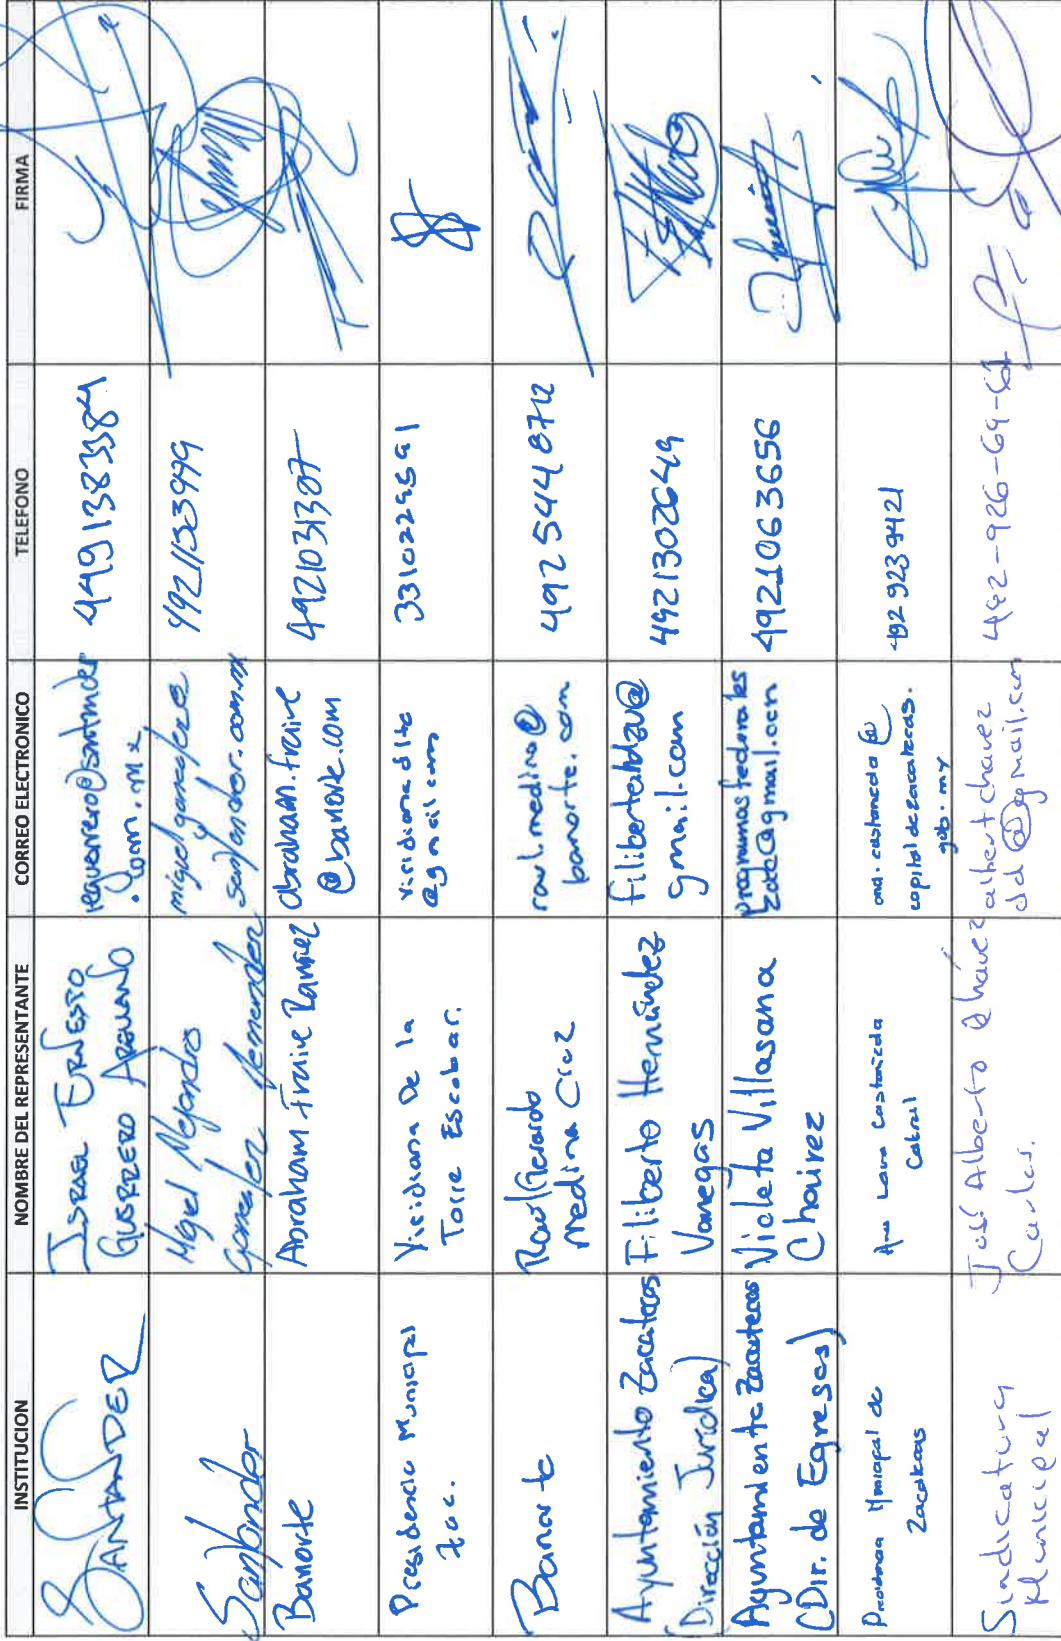 INSTITUCION
NOMBRE DEL REPRESENTANTE
CORREO ELECTRONICO
TELEFONO
FIRMA
SANTANDER
ISRAEL ERNESTO
GUERRERO ARGUANO
reguerrero@santander
.com.mx
4491383384
Santander
Migel Alejandro
Gonzalez Hernandez
santander.com.mx
4921133999
Banorte
Abraham Fraire Ramirez
abraham.fraire
@banorte.com
4921031307
Presidencia Municipal
Zac.
Viridiana De la
Torre Escobar.
@gmail.com
Banorte
Raul Gerardo
Medina Cruz
raul.medina@
banorte.com
4925448712
Ayuntamiento Zacatecas
(Dirección Jurídica)
Filiberto Hernández
Vanegas
filibertohdzv@
gmail.com
4921302649
Ayuntamiento Zacatecas
(Dir. de Egresos)
Violeta Villasana
Chairez
programasfederales
zac@gmail.com
4921063656
Presidencia Municipal de
Zacatecas
Ana Laura Castañeda
Cabral
ana.castaneda@
capitaldezacatecas.
gob.mx
492 923 9421
Sindicatura
Municipal
José Alberto Chávez
Carlos.
albertchavez
dd@gmail.com